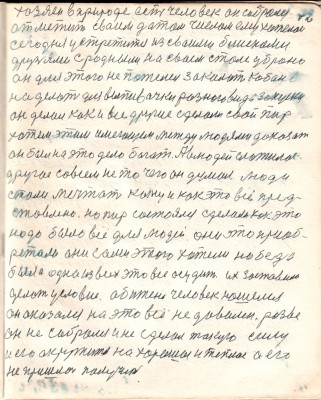 хозяен в природе есть человек он собрался
отметить сваем датам числом ему хотелось
сегодня устретится из сваими близкими
друзями сродными на сваем столе убрано
он для этого не пожелел закалот кабан
наделат для выпивачки разного вида закуски
он делал как и все другие сделал свой пир
хотел этим имеющем между людями доказат
он был на это дело багат. А людей
другое совсем не то чего он думал люди
стали мечтат кому и как это всё пред-
ставлено. но пир состоялся сделали как это
надо было всё для людей они это приоб-
ретали они сами этого хотели но беда
была одна извек это все осудит. их заставило
делат условие. абижено человек нашелся
он сказали на это всё не давали. разве
он не собрали и не сделал такую силу
и его окружит на хорошем и теплое а его
не пришлос получит